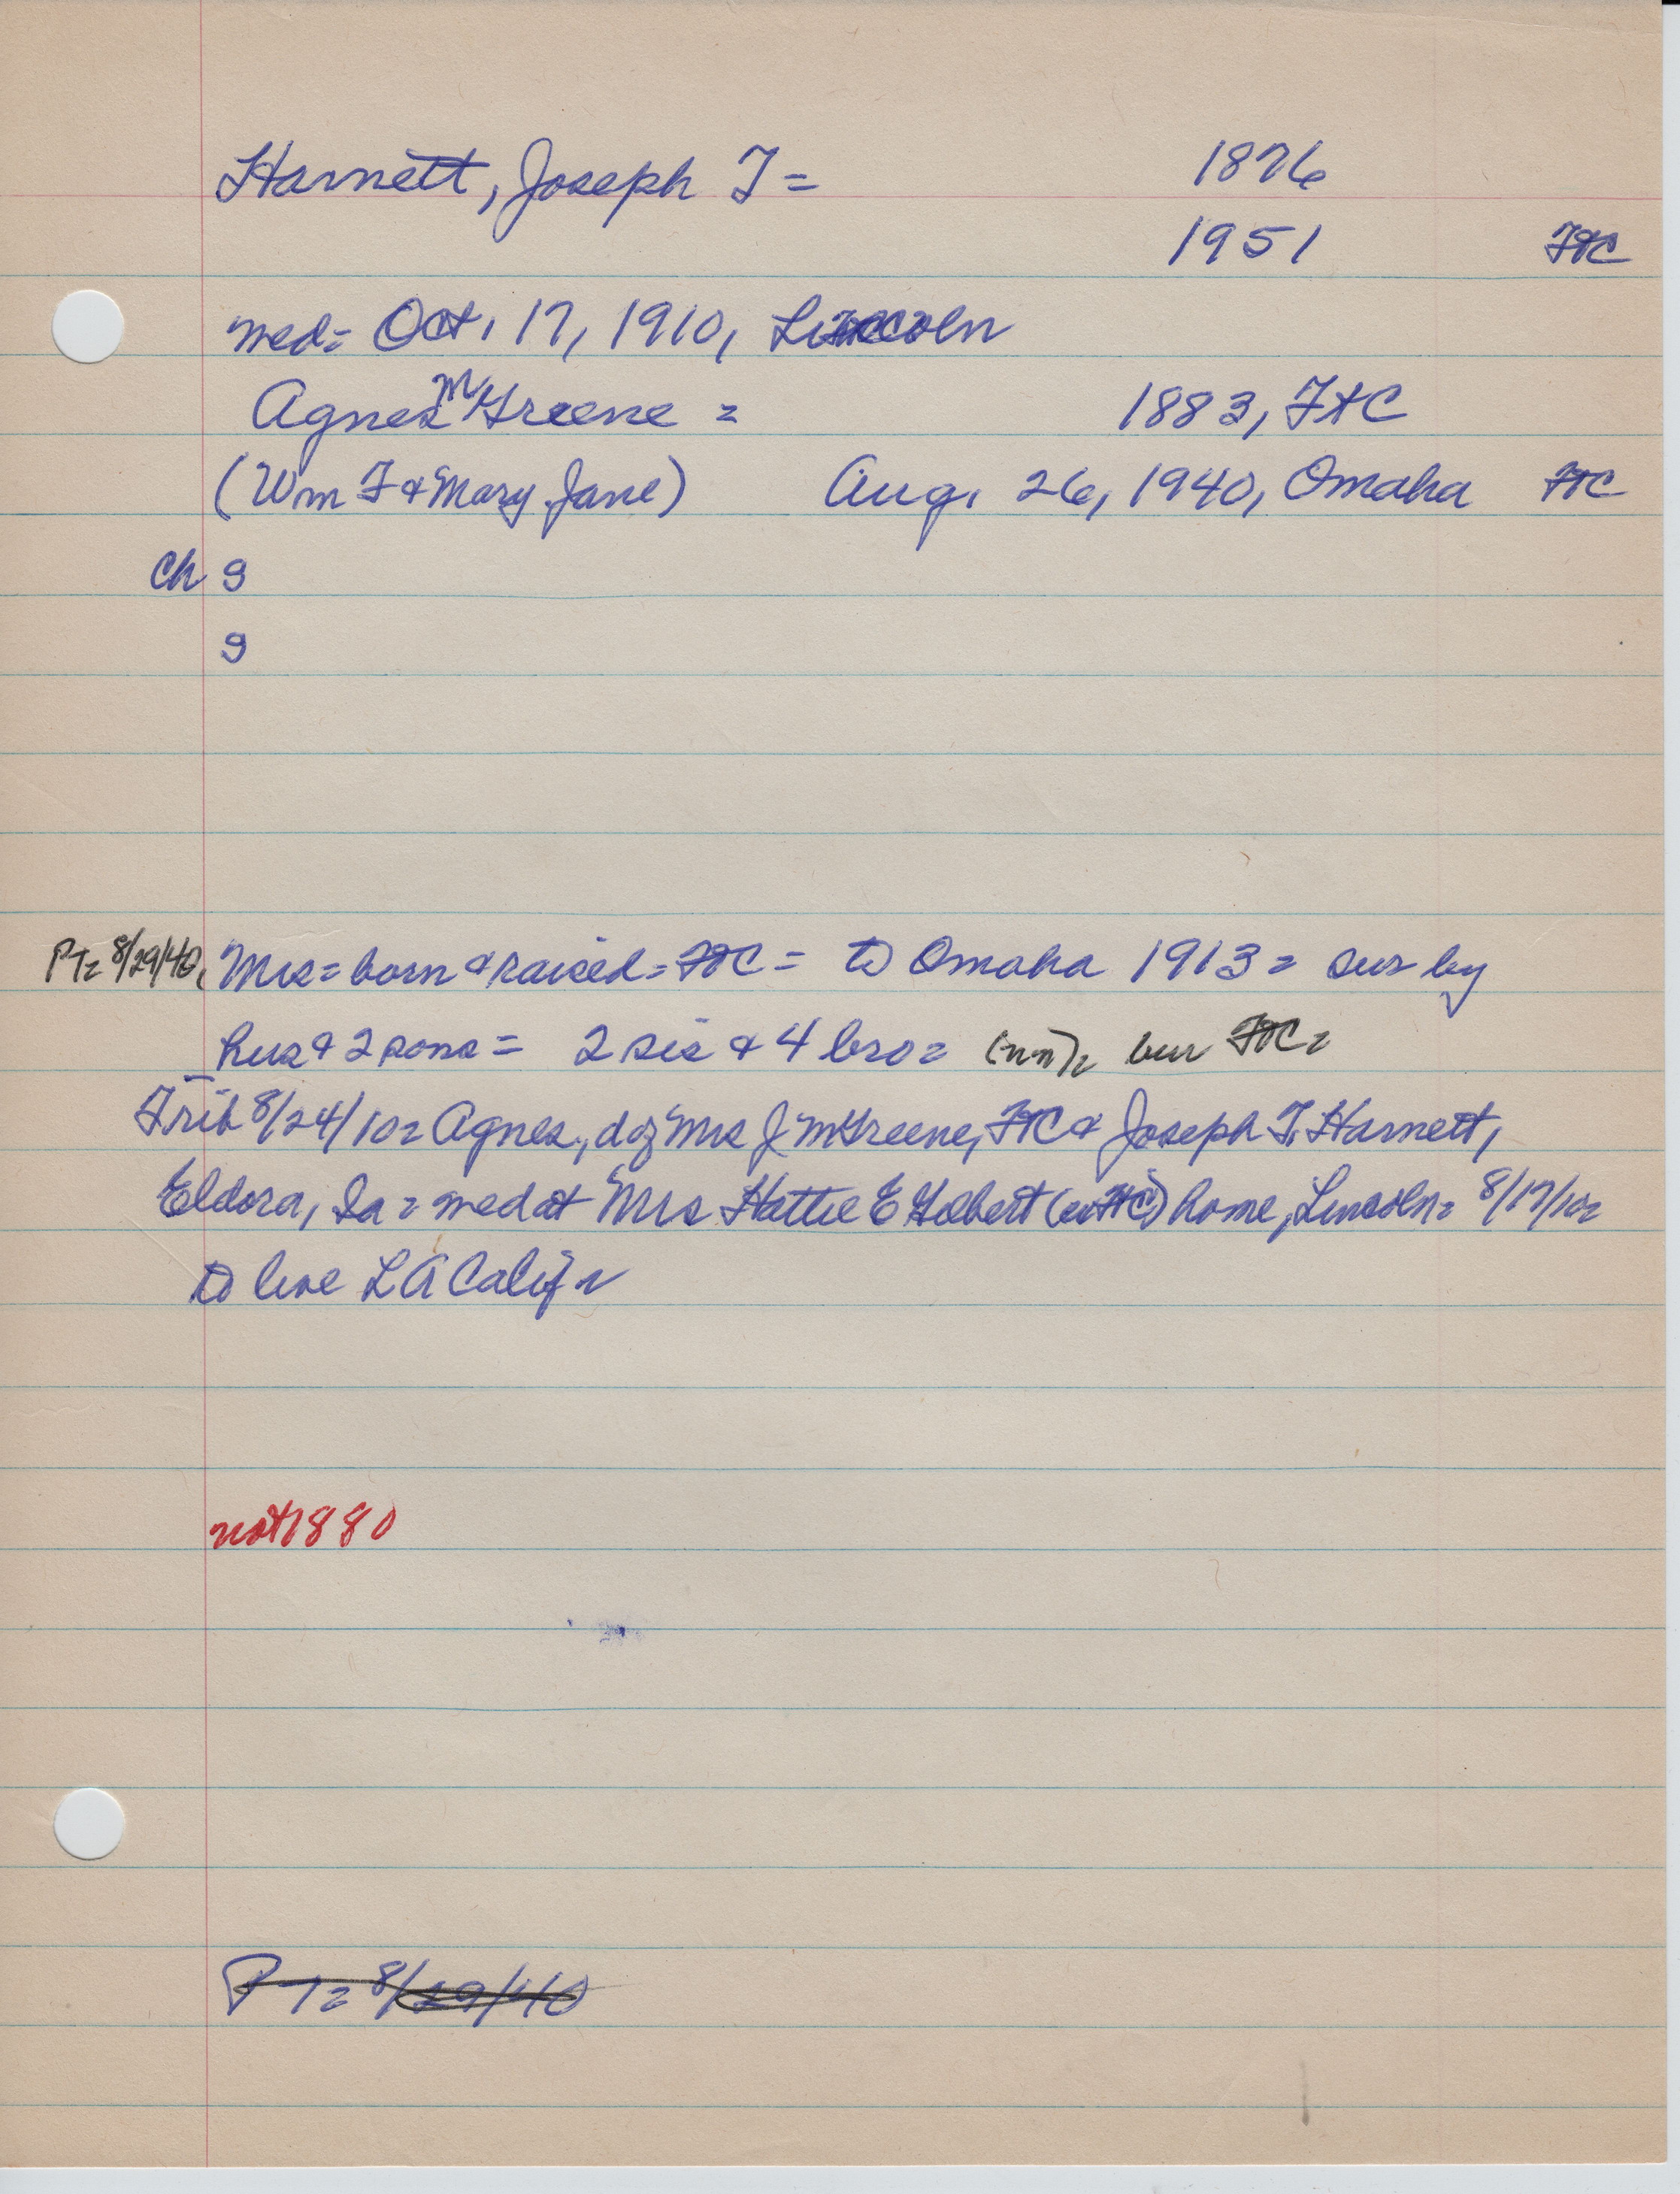 Harnett, Joseph T = 1876
1951 FtC
med = Oct. 17, 1910, Lincoln
Agnes M Greene = 1883, FtC
(Wm F & Mary Jane) Aug. 26, 1940, Omaha FtC
Ch 9
9
PT= 8/29/40, Mrs = born & raised = FtC = to Omaha 1913 = sur by
hus & 2 sons = 2 sis & 4 bro = (nn) = bur FtC =
Trib 8/24/10 = Agnes, d of Mrs J M Greene, FtC & Joseph T. Harnett,
Eldora, Ia = med at Mrs Hattie E Gilbert ( FtC) home, Lincoln = 8/17/10 =
to live LA Calif =
not 1880
PT= 8/29/40